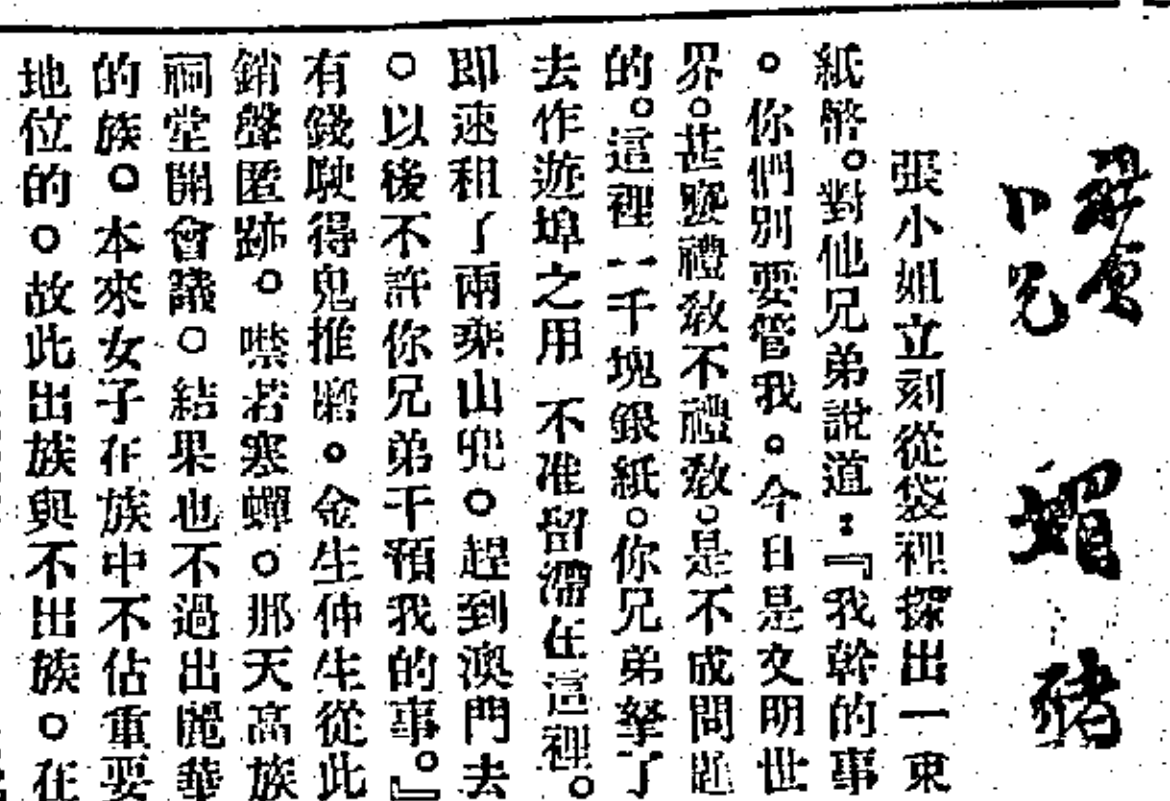 猪
張小姐立刻從袋裡探出一束
紙幣。對他兄弟說道：『我幹的事
。你們別要管我。今日是文明世
界。甚麼禮教不禮教。是不成問題
的。這裡一千塊銀紙。你兄弟拏了
去作遊埠之用 不准留滯在這裡。
即速租了兩乘山兜。趕到澳門去
。以後不許你兄弟干預我的事。』
有錢駛得鬼推磨。金生仲生從此
銷聲匿跡。噤若寒蟬。那天高族
祠堂開會議。結果也不過出麗華
的族。本來女子在族中不佔重要
地位的。故此出族與不出族。在